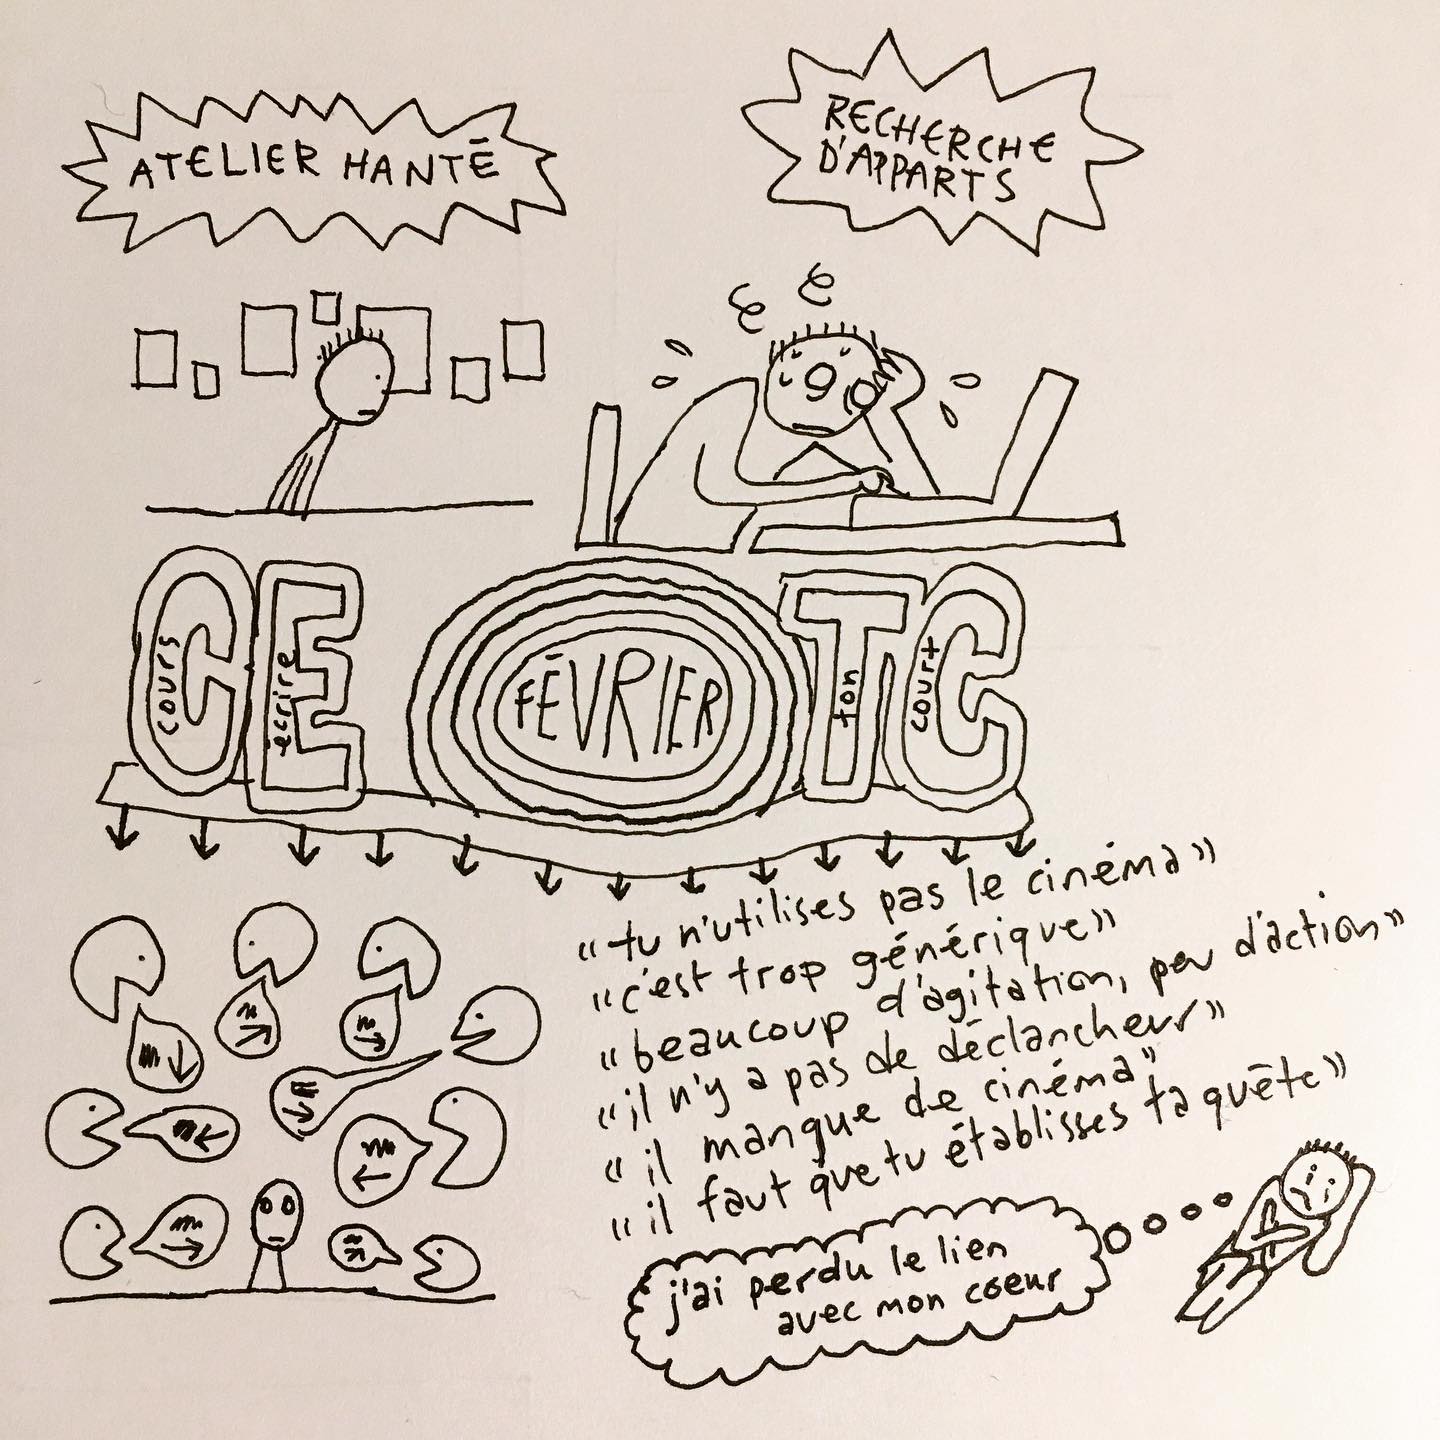 ATELIER HANTÉ
RECHERCHE
D'APPARTS
CE
cours
écrire
FÉVRIER
TC
ton
court
"tu n'utilises pas le cinéma"
"c'est trop générique"
"beaucoup d'agitation, peu d'action"
"il n'y a pas de déclancheur"
"il manque de cinéma"
"il faut que tu établisses ta quête"
j'ai perdu le lien
avec mon coeur